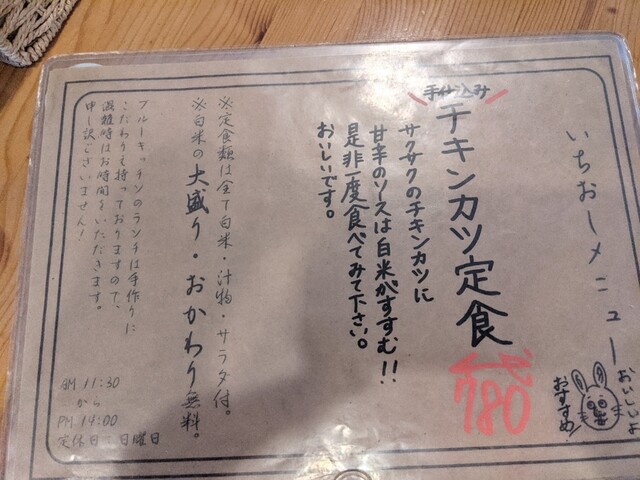 いちおしメニュー
おいしいよ
おすすめ
手仕込み
チキンカツ定食
780
サクサクのチキンカツに
甘辛のソースは白米がすすむ!!
是非一度食べてみて下さい。
おいしいです。
※定食類は全て白米・汁物・サラダ付。
※白米の大盛り・おかわり無料。
ブルーキッチンのランチは手作りに
こだわりを持っておりますので、
混雑時はお時間をいただきます。
申し訳ございません!
AM 11:30
から
PM 14:00
定休日:日曜日